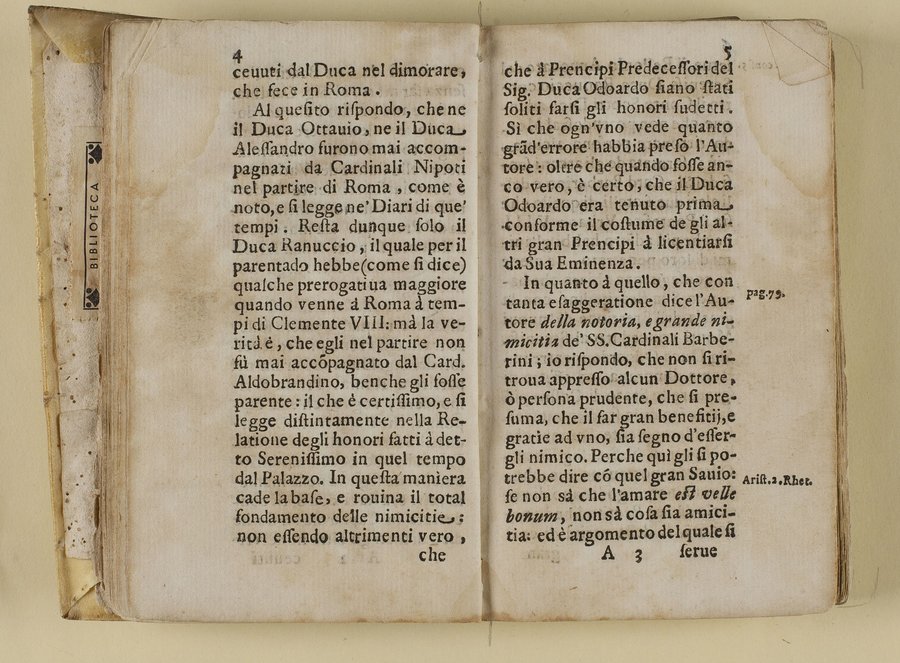 BIBLIOTECA
4
ceuuti dal Duca nel dimorare,
che fece in Roma.
Al quesito rispondo, che ne
il Duca Ottauio, ne il Duca
Aleſſandro furono mai accom-
pagnati da Cardinali Nipoti
nel partire di Roma, come è
noto, e ſi legge ne' Diari di que'
tempi. Reſta dunque ſolo il
Duca Ranuccio, il quale per il
parentado hebbe (come ſi dice)
qualche prerogatiua maggiore
quando venne á Roma à tem-
pi di Clemente VIII: mà la ve-
rità è, che egli nel partire non
fù mai accõpagnato dal Card.
Aldobrandino, benche gli foſſe
parente: il che è certiſſimo, e ſi
legge diſtintamente nella Re-
latione degli honori fatti à det-
to Sereniſſimo in quel tempo
dal Palazzo. In queſta maniera
cade la baſe, e rouina il total
fondamento delle nimicitie:
non eſſendo altrimenti vero,
che
5
che à Prencipi Predeceſſori del
Sig. Duca Odoardo ſiano ſtati
ſoliti farſi gli honori ſudetti.
Sì che ogn'vno vede quanto
grãd'errore habbia preſo l'Au-
tore: oltre che quando foſſe an-
co vero, è certo, che il Duca
Odoardo era tenuto prima
conforme il coſtume de gli al-
tri gran Prencipi à licentiarſi
da Sua Eminenza.
In quanto à quello, che con
tanta eſaggeratione dice l'Au-
pag.79.
tore della notoria, e grande ni-
micitia de' SS. Cardinali Barbe-
rini; io riſpondo, che non ſi ri-
troua appreſſo alcun Dottore,
ò perſona prudente, che ſi pre-
ſuma, che il far gran benefitij, e
gratie ad vno, ſia ſegno d'eſſer-
gli nimico. Perche quì gli ſi po-
trebbe dire cõ quel gran Sauio:
Ariſt.2.Rhet.
ſe non sà che l'amare eſt velle
bonum, non sà coſa ſia amici-
tia: ed è argomento del quale ſi
A 3 ſerue